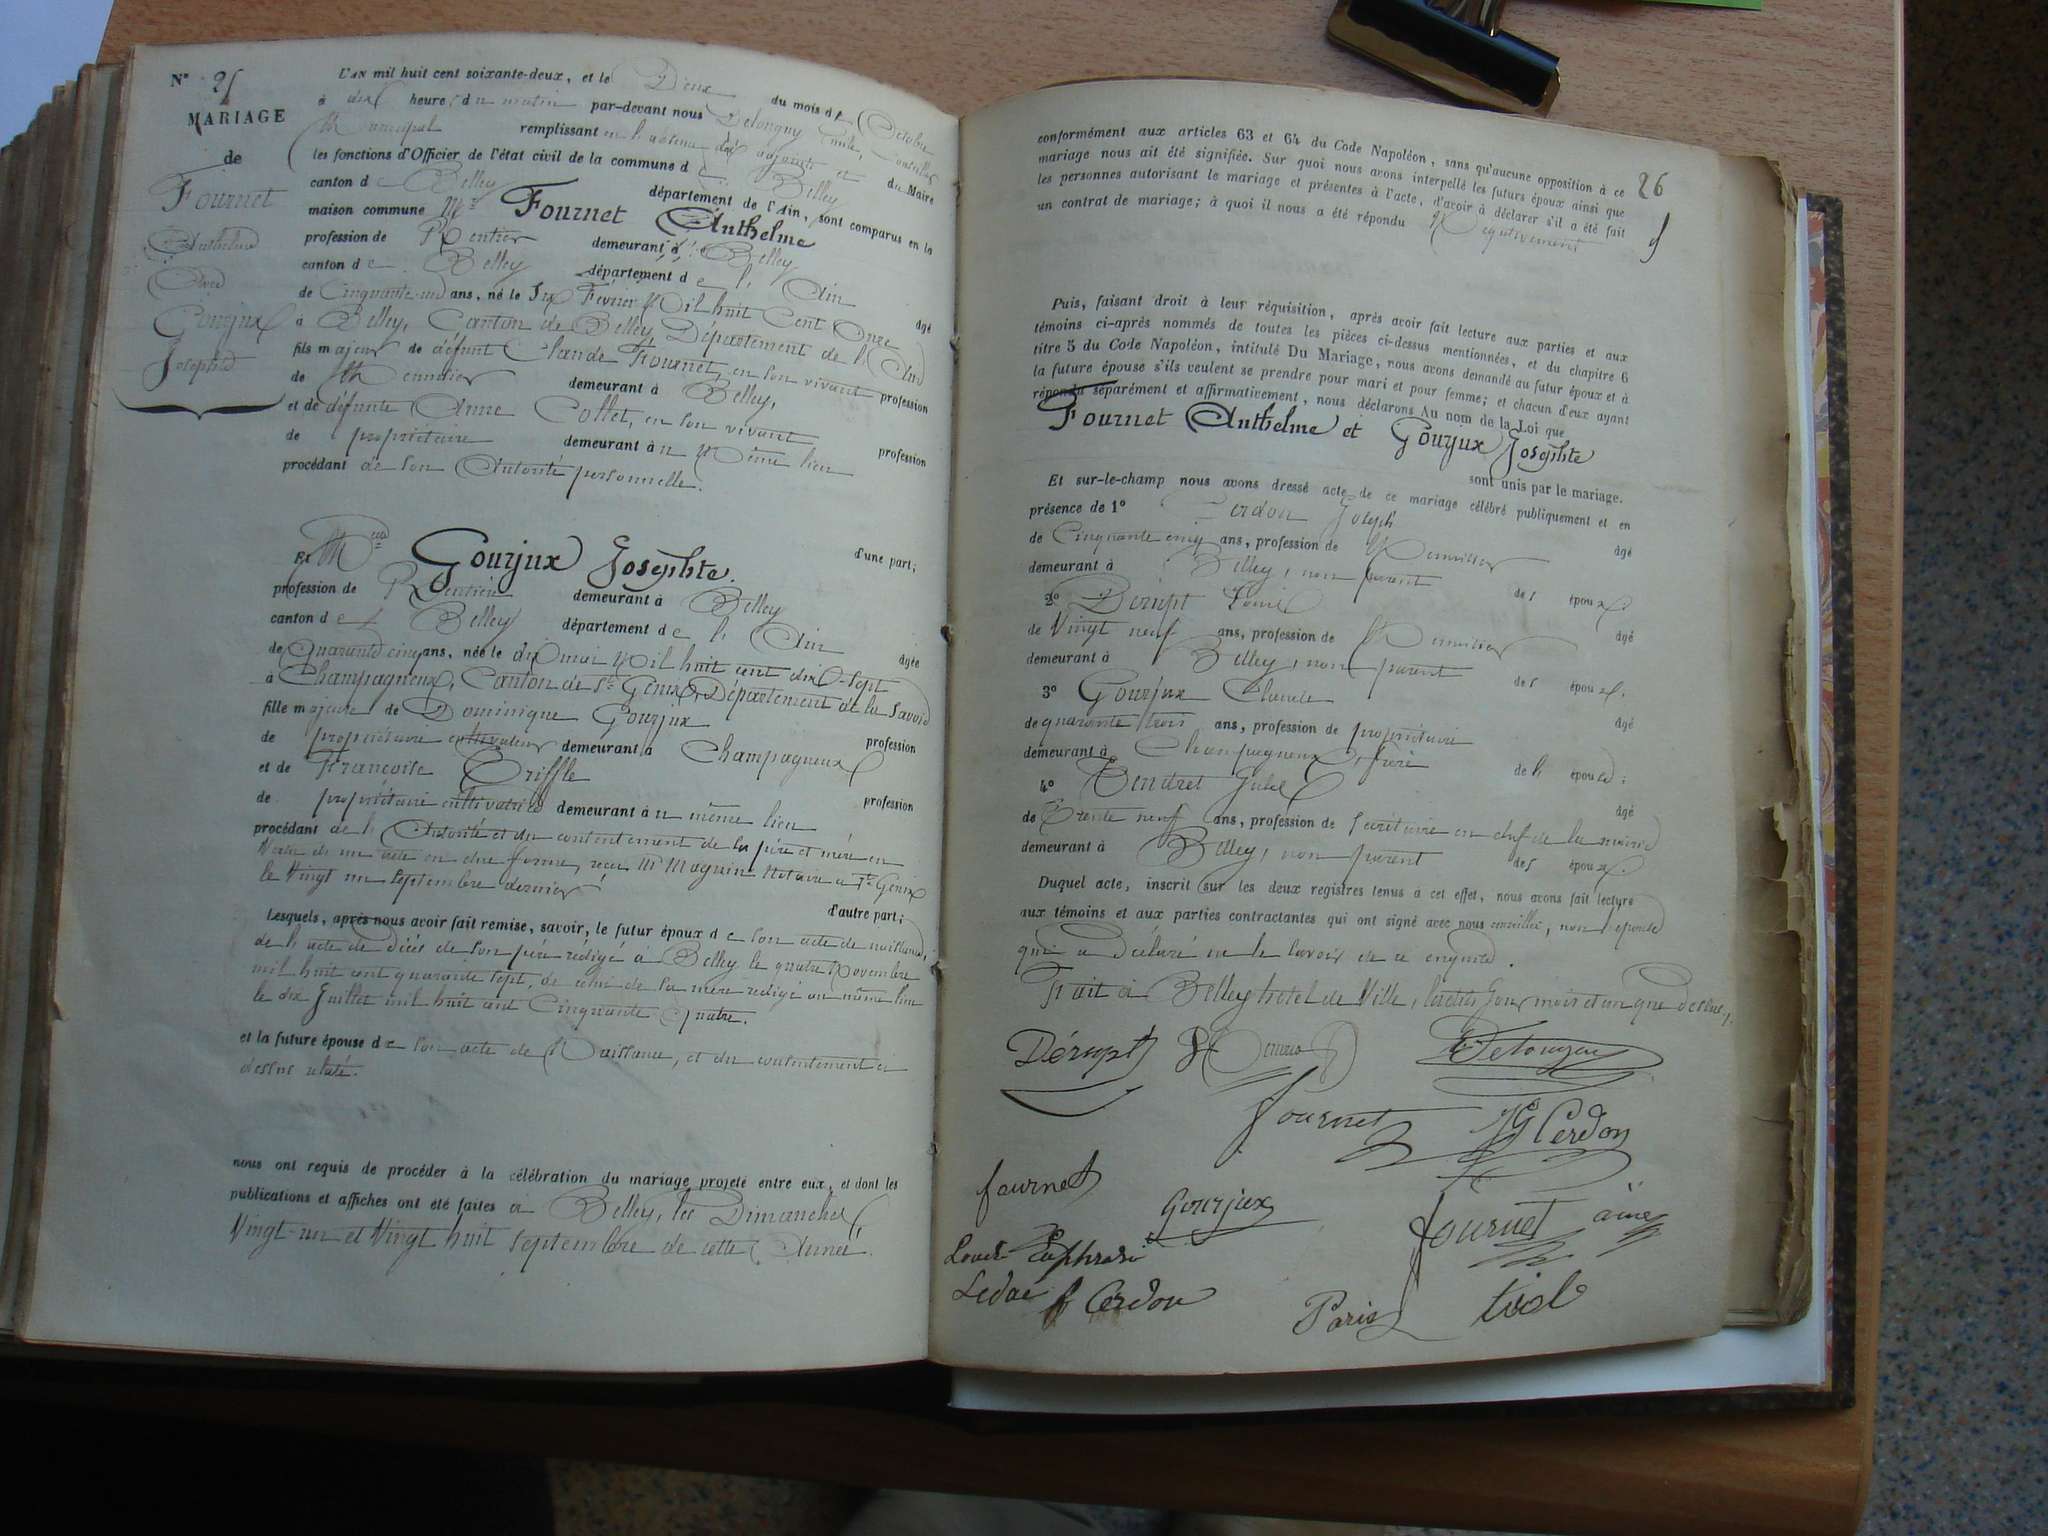 N° 25
MARIAGE
de
Fournet
Anthelme
Avec
Gourjux
Josephte
L'AN mil huit cent soixante-deux, et le Deux du mois de Octobre
à dix heures du matin par-devant nous Delongny Emile, Conseiller
Municipal remplissant en l'absence des adjoints et du Maire
les fonctions d'Officier de l'état civil de la commune de Belley
canton de Belley département de l'Ain, sont comparus en la
maison commune Mr Fournet Anthelme
profession de Rentier demeurant à Belley
canton de Belley département de l'Ain âgé
de Cinquante-un ans, né le Six Février Mil huit Cent Onze
à Belley, Canton de Belley Département de l'Ain
fils majeur de défunt Claude Fournet, en son vivant profession
de Menuisier demeurant à Belley,
et de défunte Anne Collet, en son vivant profession
de propriétaire demeurant à u Même lieu
procédant de son Autorité personnelle.
d'une part;
Et Melle Gourjux Josephte.
profession de Rentière demeurant à Belley
canton de Belley département de l'Ain âgée
de Quarante cinq ans, née le dix mai Mil huit cent dix-sept
à Champagneux, Canton de St Genix, Département de la Savoie
fille majeure de Dominique Gourjux profession
de propriétaire cultivateur demeurant à Champagneux
et de Françoise Triffle profession
de propriétaire cultivatrice demeurant à u même lieu
procédant de l'Autorité et du contentement de ses père et mère en
Vertu de un acte en due forme, reçu Mr Magnin Notaire à St Genix
le Vingt un Septembre dernier
d'autre part;
Lesquels, après nous avoir fait remise, savoir, le futur époux de son acte de naissance,
de l'acte de décès de son père rédigé à Belley le quatre Novembre
mil huit cent quarante sept, de celui de sa mère rédigé au même lieu
le dix Juillet mil huit cent Cinquante Quatre.
et la future épouse de son acte de Naissance, et du contentement ci
dessus relaté.
nous ont requis de procéder à la célébration du mariage projeté entre eux, et dont les
publications et affiches ont été faites à Belley, les Dimanches
Vingt-un et Vingt huit Septembre de cette Année.
26
conformément aux articles 63 et 64 du Code Napoléon, sans qu'aucune opposition à ce
mariage nous ait été signifiée. Sur quoi nous avons interpellé les futurs époux ainsi que
les personnes autorisant le mariage et présentes à l'acte, d'avoir à déclarer s'il a été fait
un contrat de mariage; à quoi il nous a été répondu Négativement
Puis, faisant droit à leur réquisition, après avoir fait lecture aux parties et aux
témoins ci-après nommés de toutes les pièces ci-dessus mentionnées, et du chapitre 6
titre 5 du Code Napoléon, intitulé Du Mariage, nous avons demandé au futur époux et à
la future épouse s'ils veulent se prendre pour mari et pour femme; et chacun d'eux ayant
répondu séparément et affirmativement, nous déclarons Au nom de la Loi que
Fournet Anthelme et Gourjux Josephte
sont unis par le mariage.
Et sur-le-champ nous avons dressé acte de ce mariage célébré publiquement et en
présence de 1° Cerdon Joseph âgé
de Cinquante cinq ans, profession de Menuisier
demeurant à Belley, non parent des époux.
2° Dérupt Louis âgé
de Vingt neuf ans, profession de Menuisier
demeurant à Belley, non parent des époux.
3° Gourjux Claude âgé
de quarante trois ans, profession de propriétaire
demeurant à Champagneux, frère de l'épouse:
4° Tendret Jules âgé
de Trente neuf ans, profession de Secrétaire en chef de la mairie
demeurant à Belley, non parent des époux.
Duquel acte, inscrit sur les deux registres tenus à cet effet, nous avons fait lecture
aux témoins et aux parties contractantes qui ont signé avec nous conseiller, non l'épouse
qui a déclaré ne le savoir de ce enquise.
Fait à Belley hotel de Ville, lesdits Jour mois et an que dessus,
Dérupt Delongny
Fournet JG Cerdon
fournet Gourjux fournet ainé
Louis Euphrasi
Ledac Cerdon Paris tiol